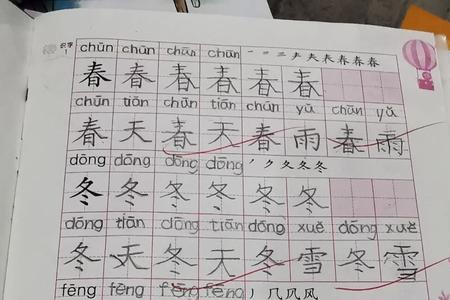 识字 1 chūn chūn chūn chūn 一 二 三 声 夫 表 春 春 春
春 春 春 春 春 春
chūn tiān chūn tiān chūn yǔ chūn yǔ
春 天 春 天 春 雨 春 雨
dōng dōng dōng dōng 丿 ク 夂 冬 冬
冬 冬 冬 冬 冬 冬
dōng tiān dōng tiān dōng xuě dōng xuě
冬 天 冬 天 冬 雪 冬 雪
fēng fēng fēng fēng 丿 几 凤 风